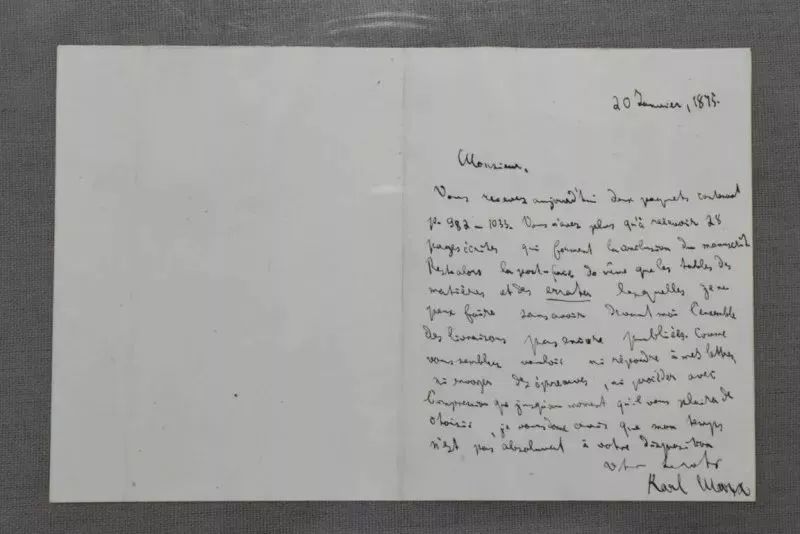 20 Janvier, 1875.
Monsieur,
Vous recevez aujourd'hui deux paquets contenant
p. 982 – 1033. Vous n'avez plus qu'à recevoir 28
pages écrites qui forment la conclusion du manuscrit
Reste alors la postface de même que les tables des
matières et des errata lesquelles je ne
peux faire sans avoir devant moi l'ensemble
des livraisons pas encore publiées. Comme
vous semblez vouloir ni répondre à mes lettres
ni envoyer des épreuves, ni procéder avec
l'impression que jusqu'au moment qu'il vous plaira de
choisir, je vous donne avis que mon temps
n'est pas absolument à votre disposition
Votre
Karl Marx